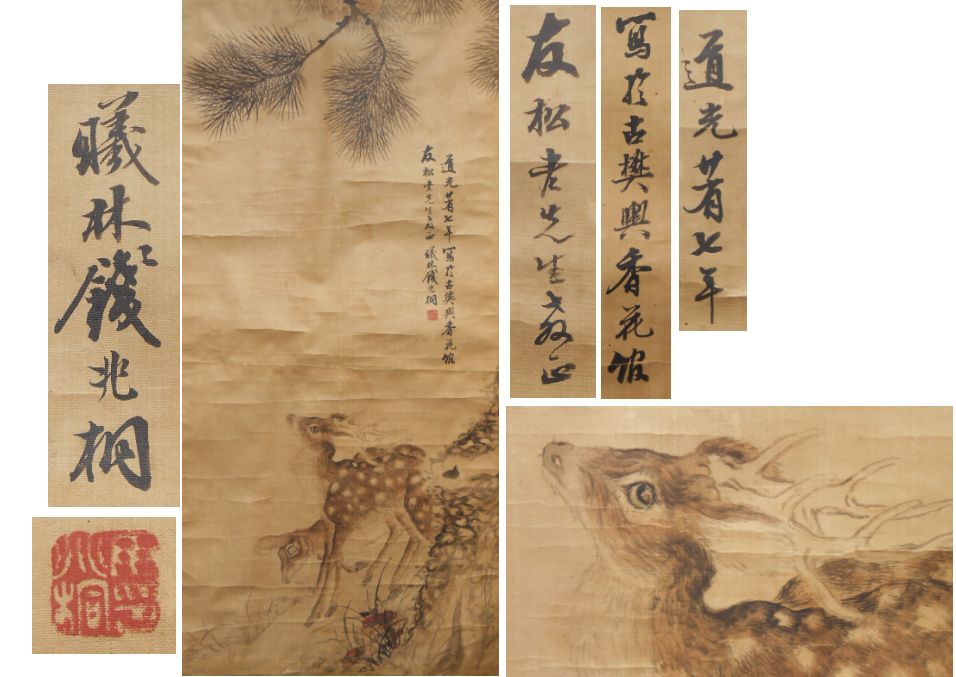 曦林錢兆桐
道光廿有七年寫於古樊輿香花館
友松老先生教正 曦林錢兆桐
道光廿有七年
寫於古樊輿香花館
友松老先生教正
兆桐